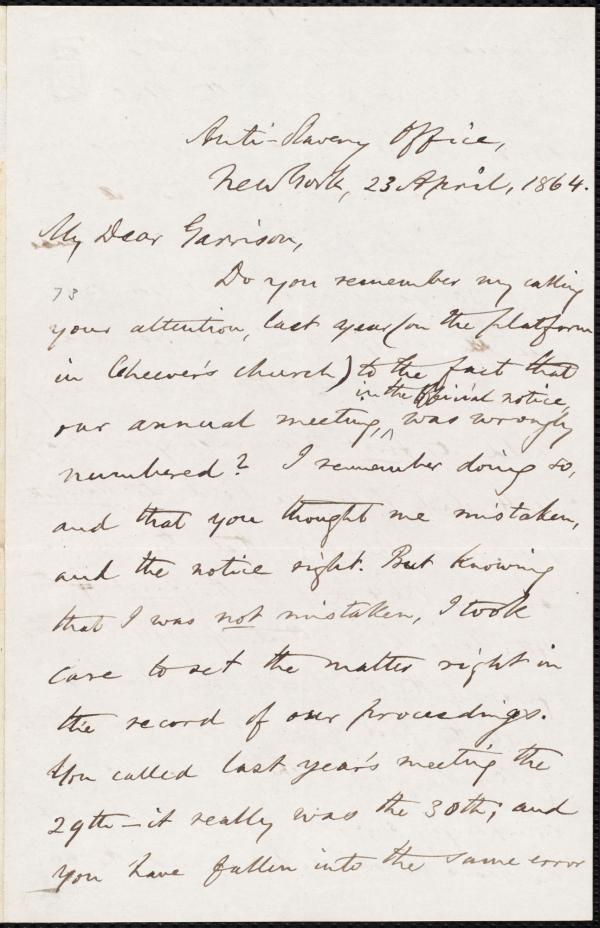 Anti-Slavery Office,
New York, 23 April, 1864.
My Dear Garrison,
Do you remember my calling
73
your attention, last year (on the platform
in Cheever's church) to the fact that
in the official notice,
our annual meeting, ^ was wrongly
numbered? I remember doing so,
and that you thought me mistaken,
and the notice right. But knowing
that I was not mistaken, I took
care to set the matter right in
the record of our proceedings.
You called last year's meeting the
29th—it really was the 30th; and
you have fallen into the same error